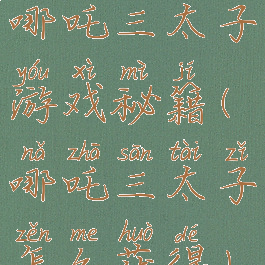 哪吒三太子
yóu xì mì jí
游戏秘籍(
nǎ zhā sān tài zǐ
哪吒三太子
zěn me huò dé
怎么获得)